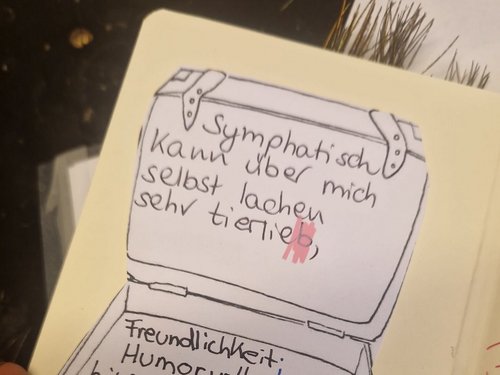 Symphatisch
Kann über mich
selbst lachen
sehr tierlieb,
Freundlichkeit;